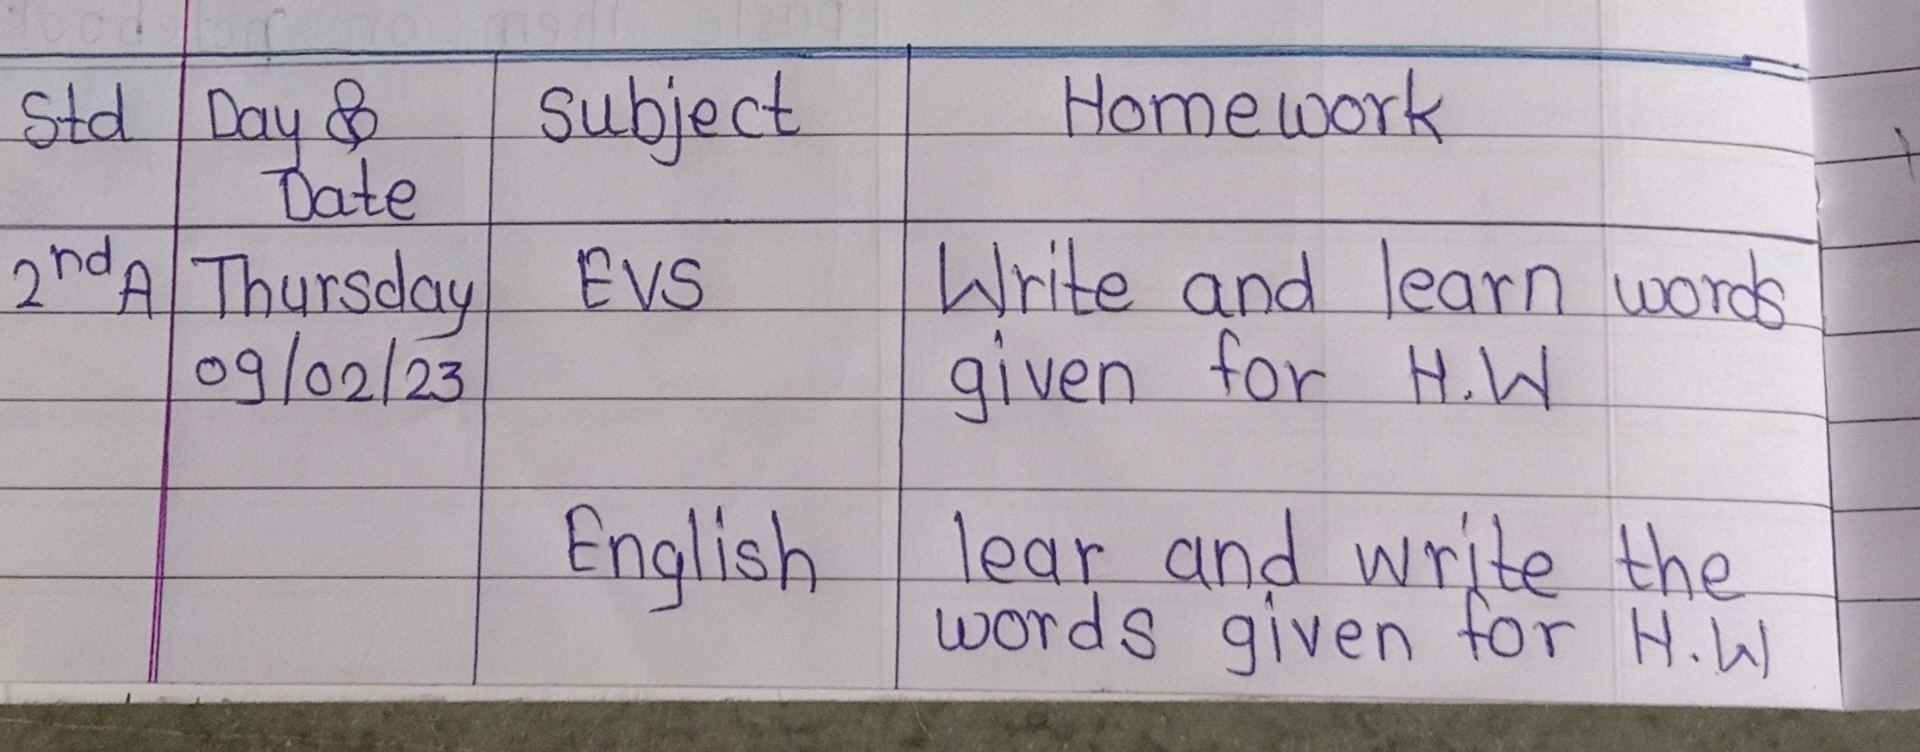 Std Day & Subject Homework
Date
2nd A Thursday EVS Write and learn words
09/02/23 given for H.W
English lear and write the
words given for H.W